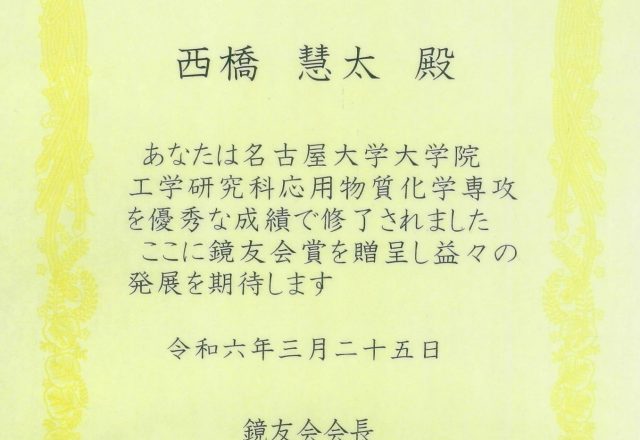 西橋 慧太 殿
あなたは名古屋大学大学院
工学研究科応用物質化学専攻
を優秀な成績で修了されました
ここに鏡友会賞を贈呈し益々の
発展を期待します
令和六年三月二十五日
鏡友会会長